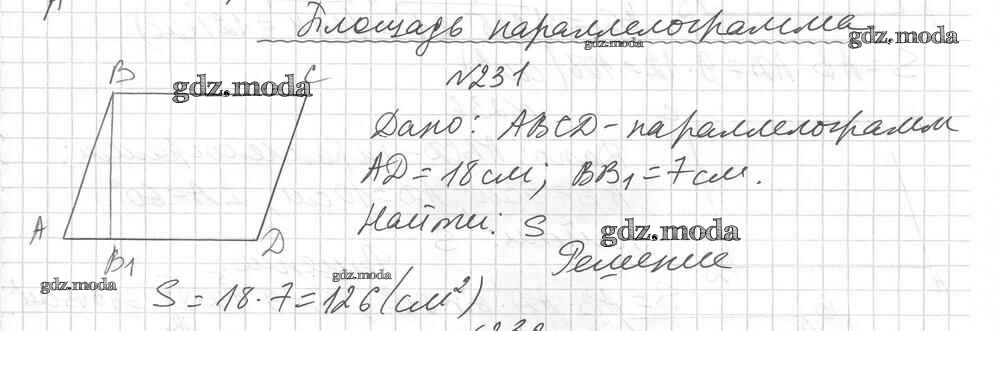 Площадь параллелограмма
gdz.moda
gdz.moda
№231
B
C
gdz.moda
Дано: ABCD - параллелограмм
AD = 18 см; BB₁ = 7 см.
Найти: S
gdz.moda
A
D
B₁
Решение
gdz.moda
gdz.moda
S = 18 · 7 = 126 (см²)